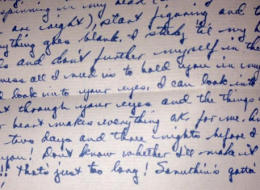 spinning in my head
are right), start figuring and t
ything goes blank. I study til my h
ls and don't further myself in the
ness all I need is to hold you in my
d look into your eyes. I can look int
t through your eyes and the things
r heart makes everything ok for me. b
two days and three nights before I
you! Don't know whether I'll make it
!! that's just too long! Somethin's gotta